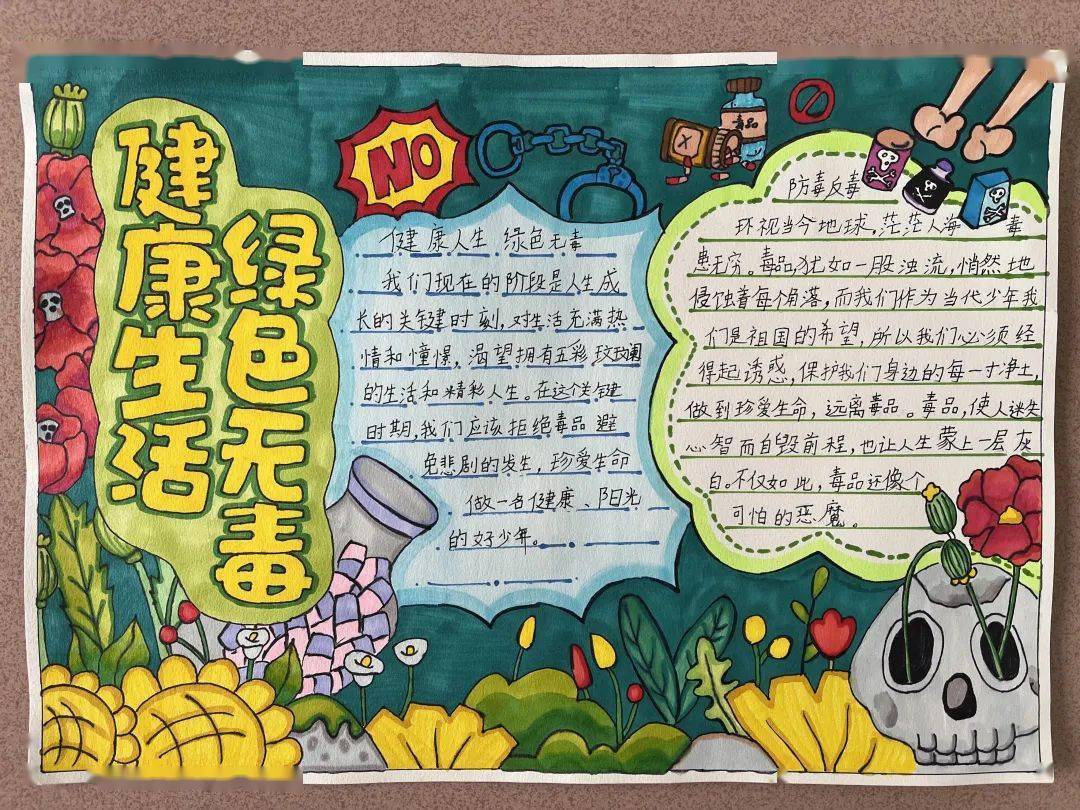 健康生活
绿色无毒
NO
毒品
健康人生 绿色无毒
我们现在的阶段是人生成
长的关键时刻，对生活充满热
情和憧憬，渴望拥有五彩
的生活和精彩人生。在这个关键
时期，我们应该拒绝毒品 避
免悲剧的发生，珍爱生命
做一名健康、阳光
的好少年。
防毒反毒
环视当今地球，茫茫人海 毒
患无穷。毒品，犹如一股浊流，悄然地
侵蚀着每个角落，而我们作为当代少年我
们是祖国的希望，所以我们必须经
得起诱惑，保护我们身边的每一寸净土，
做到珍爱生命，远离毒品。毒品，使人迷失
心智而自毁前程，也让人生蒙上一层灰
白。不仅如此，毒品还像个
可怕的恶魔。